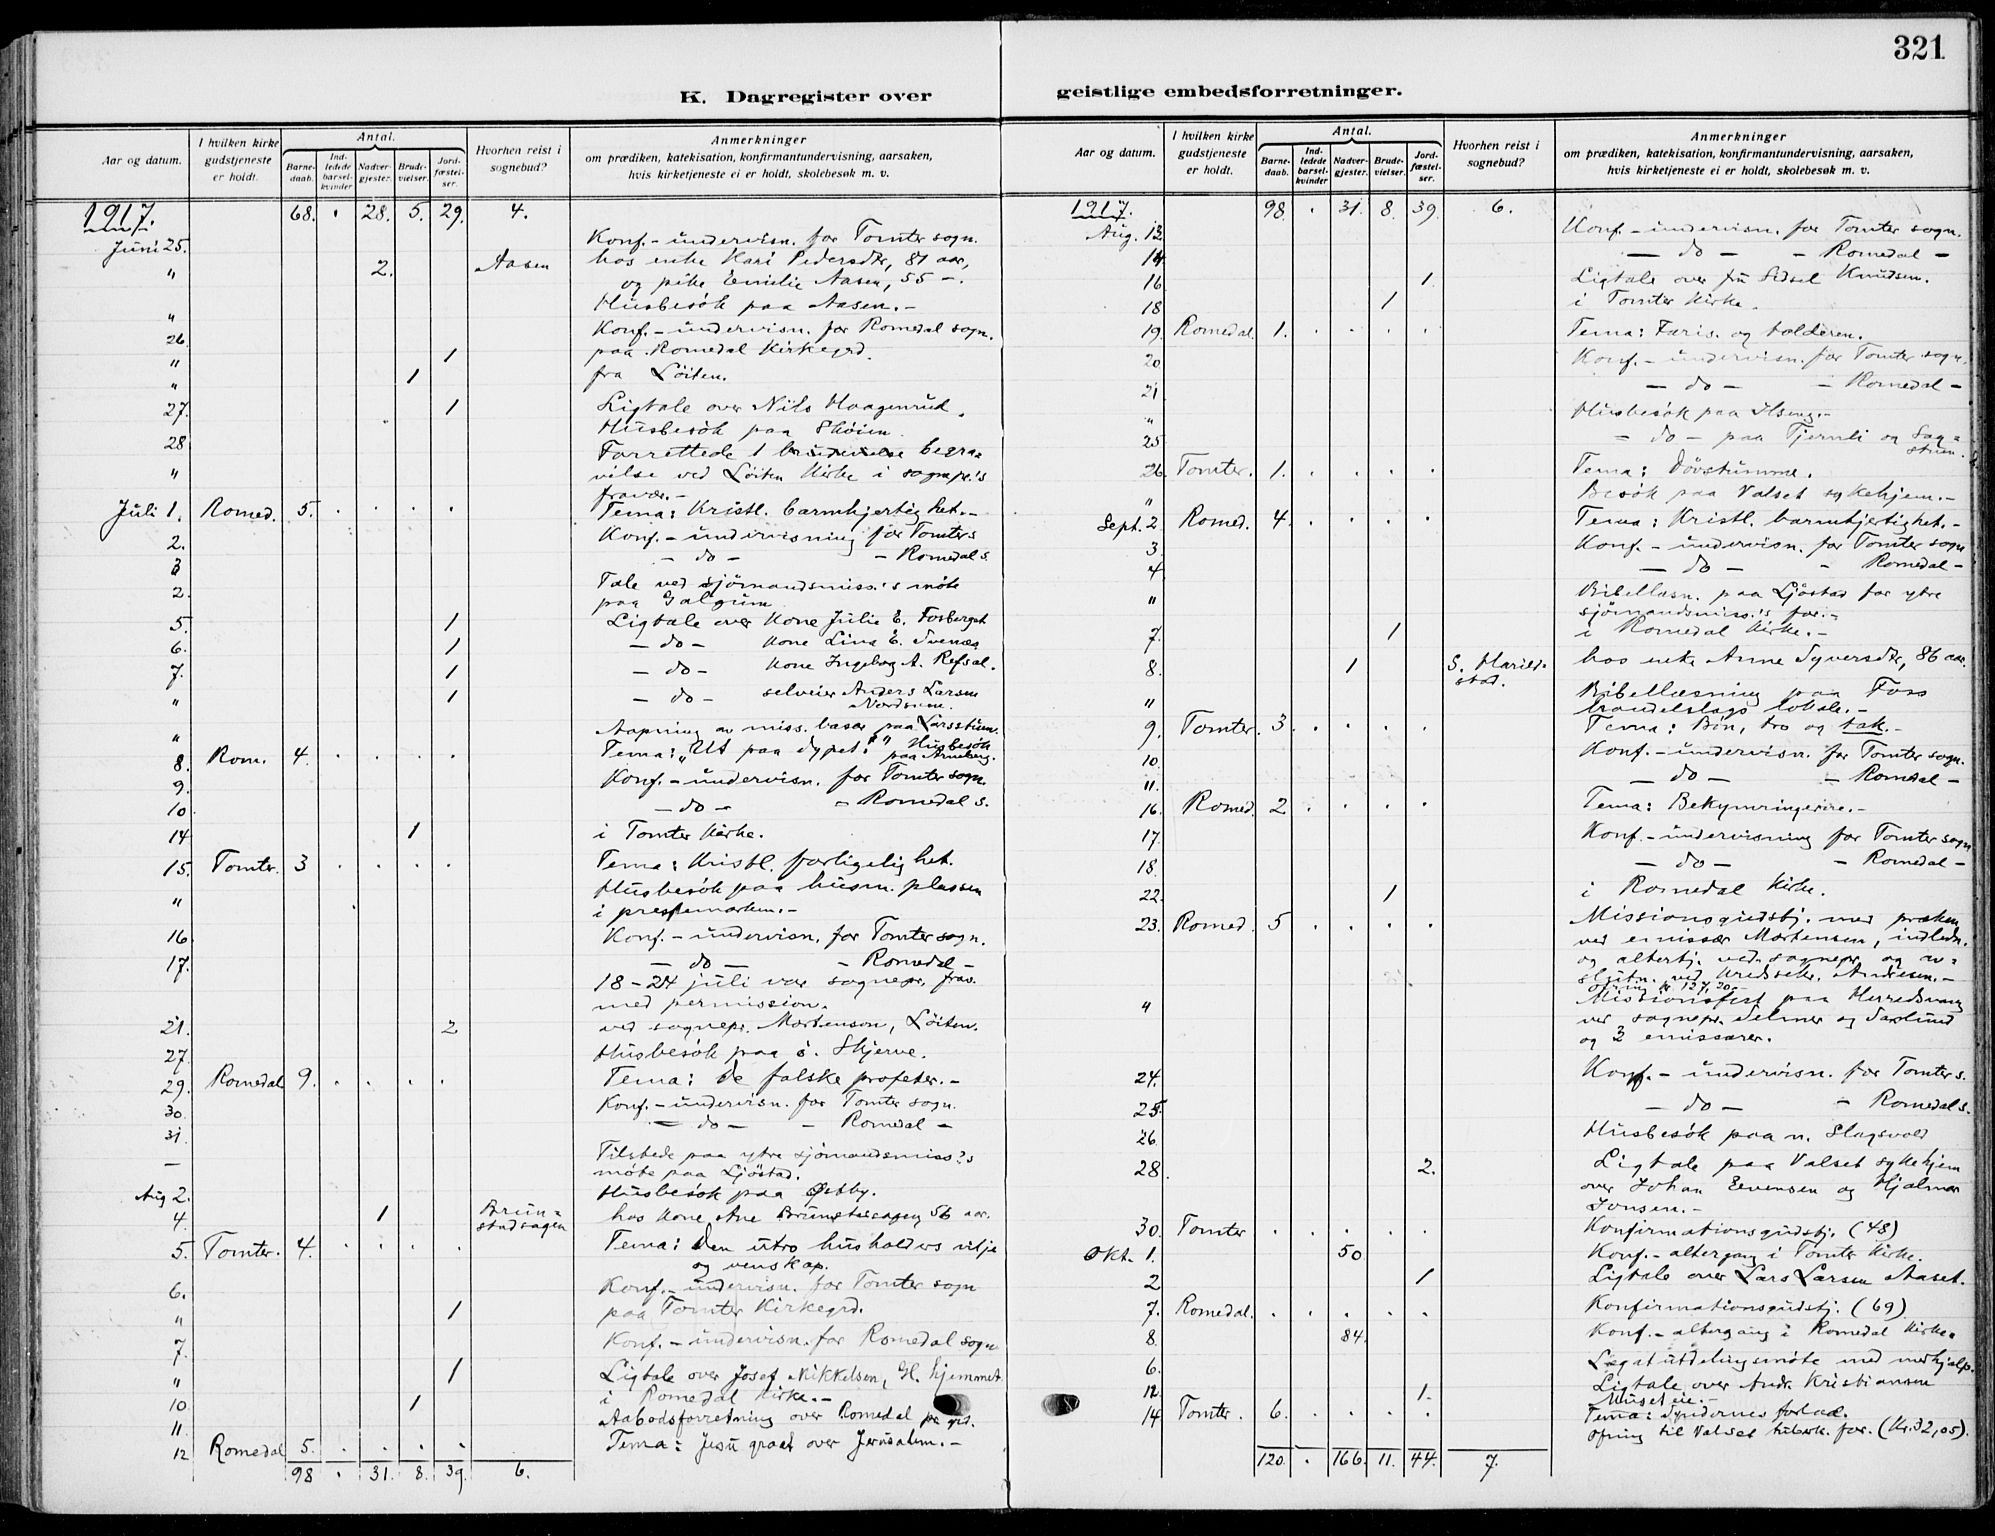 321
K. Dagregister over geistlige embedsforretninger.
Aar og datum. I hvilken kirke gudstjeneste er holdt. Antal. Barnedaab. Indledede barselkvinder Nadvergjester. Brudevielser. Jordfæstelser. Hvorhen reist i sognebud? Anmerkninger
om prædiken, katekisation, konfirmantundervisning, aarsaken,
hvis kirketjeneste ei er holdt, skolebesøk m. v.
1917. 68. . 28. 5. 29. 4.
Juni 25. Konf.-undervisn. for Tomter sogn.
" 2. Aasen hos enke Kari Pedersdtr, 81 aar,
og pike Emilie Aasen, 55 -.
" Husbesök paa Aasen.-
26. Konf.-undervisn. for Romedal sogn.
" 1 paa Romedal Kirkegrd.
" 1 fra Löiten.
27. 1 Ligtale over Nils Haagenrud.
28 Husbesök paa Sköien
" Forrettede 1 brudevielse begra-
velse ved Löiten Kirke i sognepr.'s
fravær.-
Juli 1. Romed. 5. . . . . Tema: Kristl. barmhjertighet.-
2. Konf.-undervisning for Tomter s
3 - do - - Romedal s.
2. Tale ved sjömandsmiss.'s möte
paa Galgum
5. 1 Ligtale over Kone Julie E. Fosberget
6. 1 - do - Kone Lina E. Svenæs
7. 1 - do - Kone Ingebog A. Refsal.
" 1 - do - selveier Anders Larsen
Nordsveen.
" Aapning av miss. basar paa Larsstuen.
8. Rom. 4. . . . . Tema: "Ut paa dypet." Husbesök
paa Arneberg.
9. Konf.-undervisn. for Tomter sogn.
10 - do - - Romedal s.
14 1 i Tomter Kirke.
15. Tomter. 3 . . . . Tema: Kristl. forligelighet.
" Husbesök paa husm. plassen
i prestemarken.-
16 Konf.-undervisn. for Tomter sogn.
17. - do - - Romedal -
18-24 juli var sognepr. frav.
med permission.
21. 2 ved sognepr. Mortenson, Löiten.
27. Husbesök paa ö. Skjerve.
29. Romedal 9. . . . . Tema: De falske profeter.-
30. Konf.-undervisn. for Tomter sogn.
31. - do - - Romedal -
- Tilstede paa ytre sjömandsmiss.'s
möte paa Ljöstad.
Aug 2. Husbesök paa Østby.
4. 1 Brun-
stadsagen hos Kone Ane Brunstadsagen 56 aar.
5. Tomter. 4. . . . . Tema: Den utro husholders vilje
og venskap.
6. Konf.-undervisn. for Tomter sogn
" 1 paa Tomter Kirkegrd.
7. Konf.-undervisn. for Romedal sogn
" 1 Ligtale over Josef Mikkelsen, Gl. hjemmet
10. 1 i Romedal Kirke.-
11. Aabodsforretning over Romedal pr.gd.
12 Romedal 5. . . . . Tema: Jesu graat over Jerusalem.-
98 . 31. 8. 39. 6.
Aar og datum. I hvilken kirke gudstjeneste er holdt. Antal. Barnedaab. Indledede barselkvinder Nadvergjester. Brudevielser. Jordfæstelser. Hvorhen reist i sognebud? Anmerkninger
om prædiken, katekisation, konfirmantundervisning, aarsaken,
hvis kirketjeneste ei er holdt, skolebesøk m. v.
1917. 98. . 31. 8. 39. 6.
Aug. 13. Konf.-undervisn. for Tomter sogn.
14 - do - - Romedal -
16 1. Ligtale over fru Sidsel Knudsen.
18 1 i Tomter Kirke.
19. Romedal. 1. . . . . Tema: Faris. og tolderen.
20 Konf.-undervisn. for Tomter sogn.
21 - do - - Romedal -
" Husbesök paa Ilseng.-
25 - do - paa Tjernli og Sag-
stuen.
26. Tomter. 1. . . . . Tema: Dövstumme.
" Besök paa Valset sykehjem.-
Sept. 2. Romed. 4. . . . . Tema: Kristl. barmhjertighet.-
3. Konf.-undervisn. for Tomter sogn
4. - do - - Romedal -
" Bibellæsn. paa Ljöstad for ytre
sjömandsmiss.'s for.-
7. 1 i Romedal Kirke.-
8. 1 S. Harild-
stad. hos enke Anne Syversdtr, 86 aar.
" Bibellæsning paa Foss
handelslags lokale.-
9. Tomter. 3 . . . . Tema: Bön, tro og tak.-
10. Konf.-undervisn. for Tomter sogn.
11. - do - - Romedal -
16. Romed. 2 . . . . Tema: Bekymringerne.-
17. Konf.-undervisning for Tomter sogn
18. - do - - Romedal -
22. 1 i Romedal Kirke.
23. Romed. 5 . . . . Missionsgudstj. med præken
ved emissær Mortensen, indledn.
og altertj. ved sognepr. og av-
slutn. ved Kredssekr. Andresen.-
Ofring kr 137,20-
" Missionsfest paa Herredsvang
ver sognepr. Selmer og
og 3 emissærer.
24. Konf.-undervisn. for Tomter s.
25. - do - - Romedal s.
26. Husbesök paa n. Slagsvold
28. 2. Ligtale paa Valset sykehjem
over Johan Evensen og Hjalmar
Jonsen.-
30. Tomter . . . . . Konfirmationsgudstj. (48)
Okt. 1. 50. Konf.-altergang i Tomter Kirke.
2 1 Ligtale over Lars Larsen Aaset.
7. Romedal. . . . . . Konfirmationsgudstj. (69)
8. 84. Konf.-altergang i Romedal Kirke.
6. Legatutdelingsmöte med medhjælp.
12 1. Ligtale over Andr. Kristiansen
14 Tomter. 6. . . . . Tema: Syndernes forlad.
Ofring til Valset tuberk. for. (Kr. 32,05).
120. . 166. 11. 44. 7.